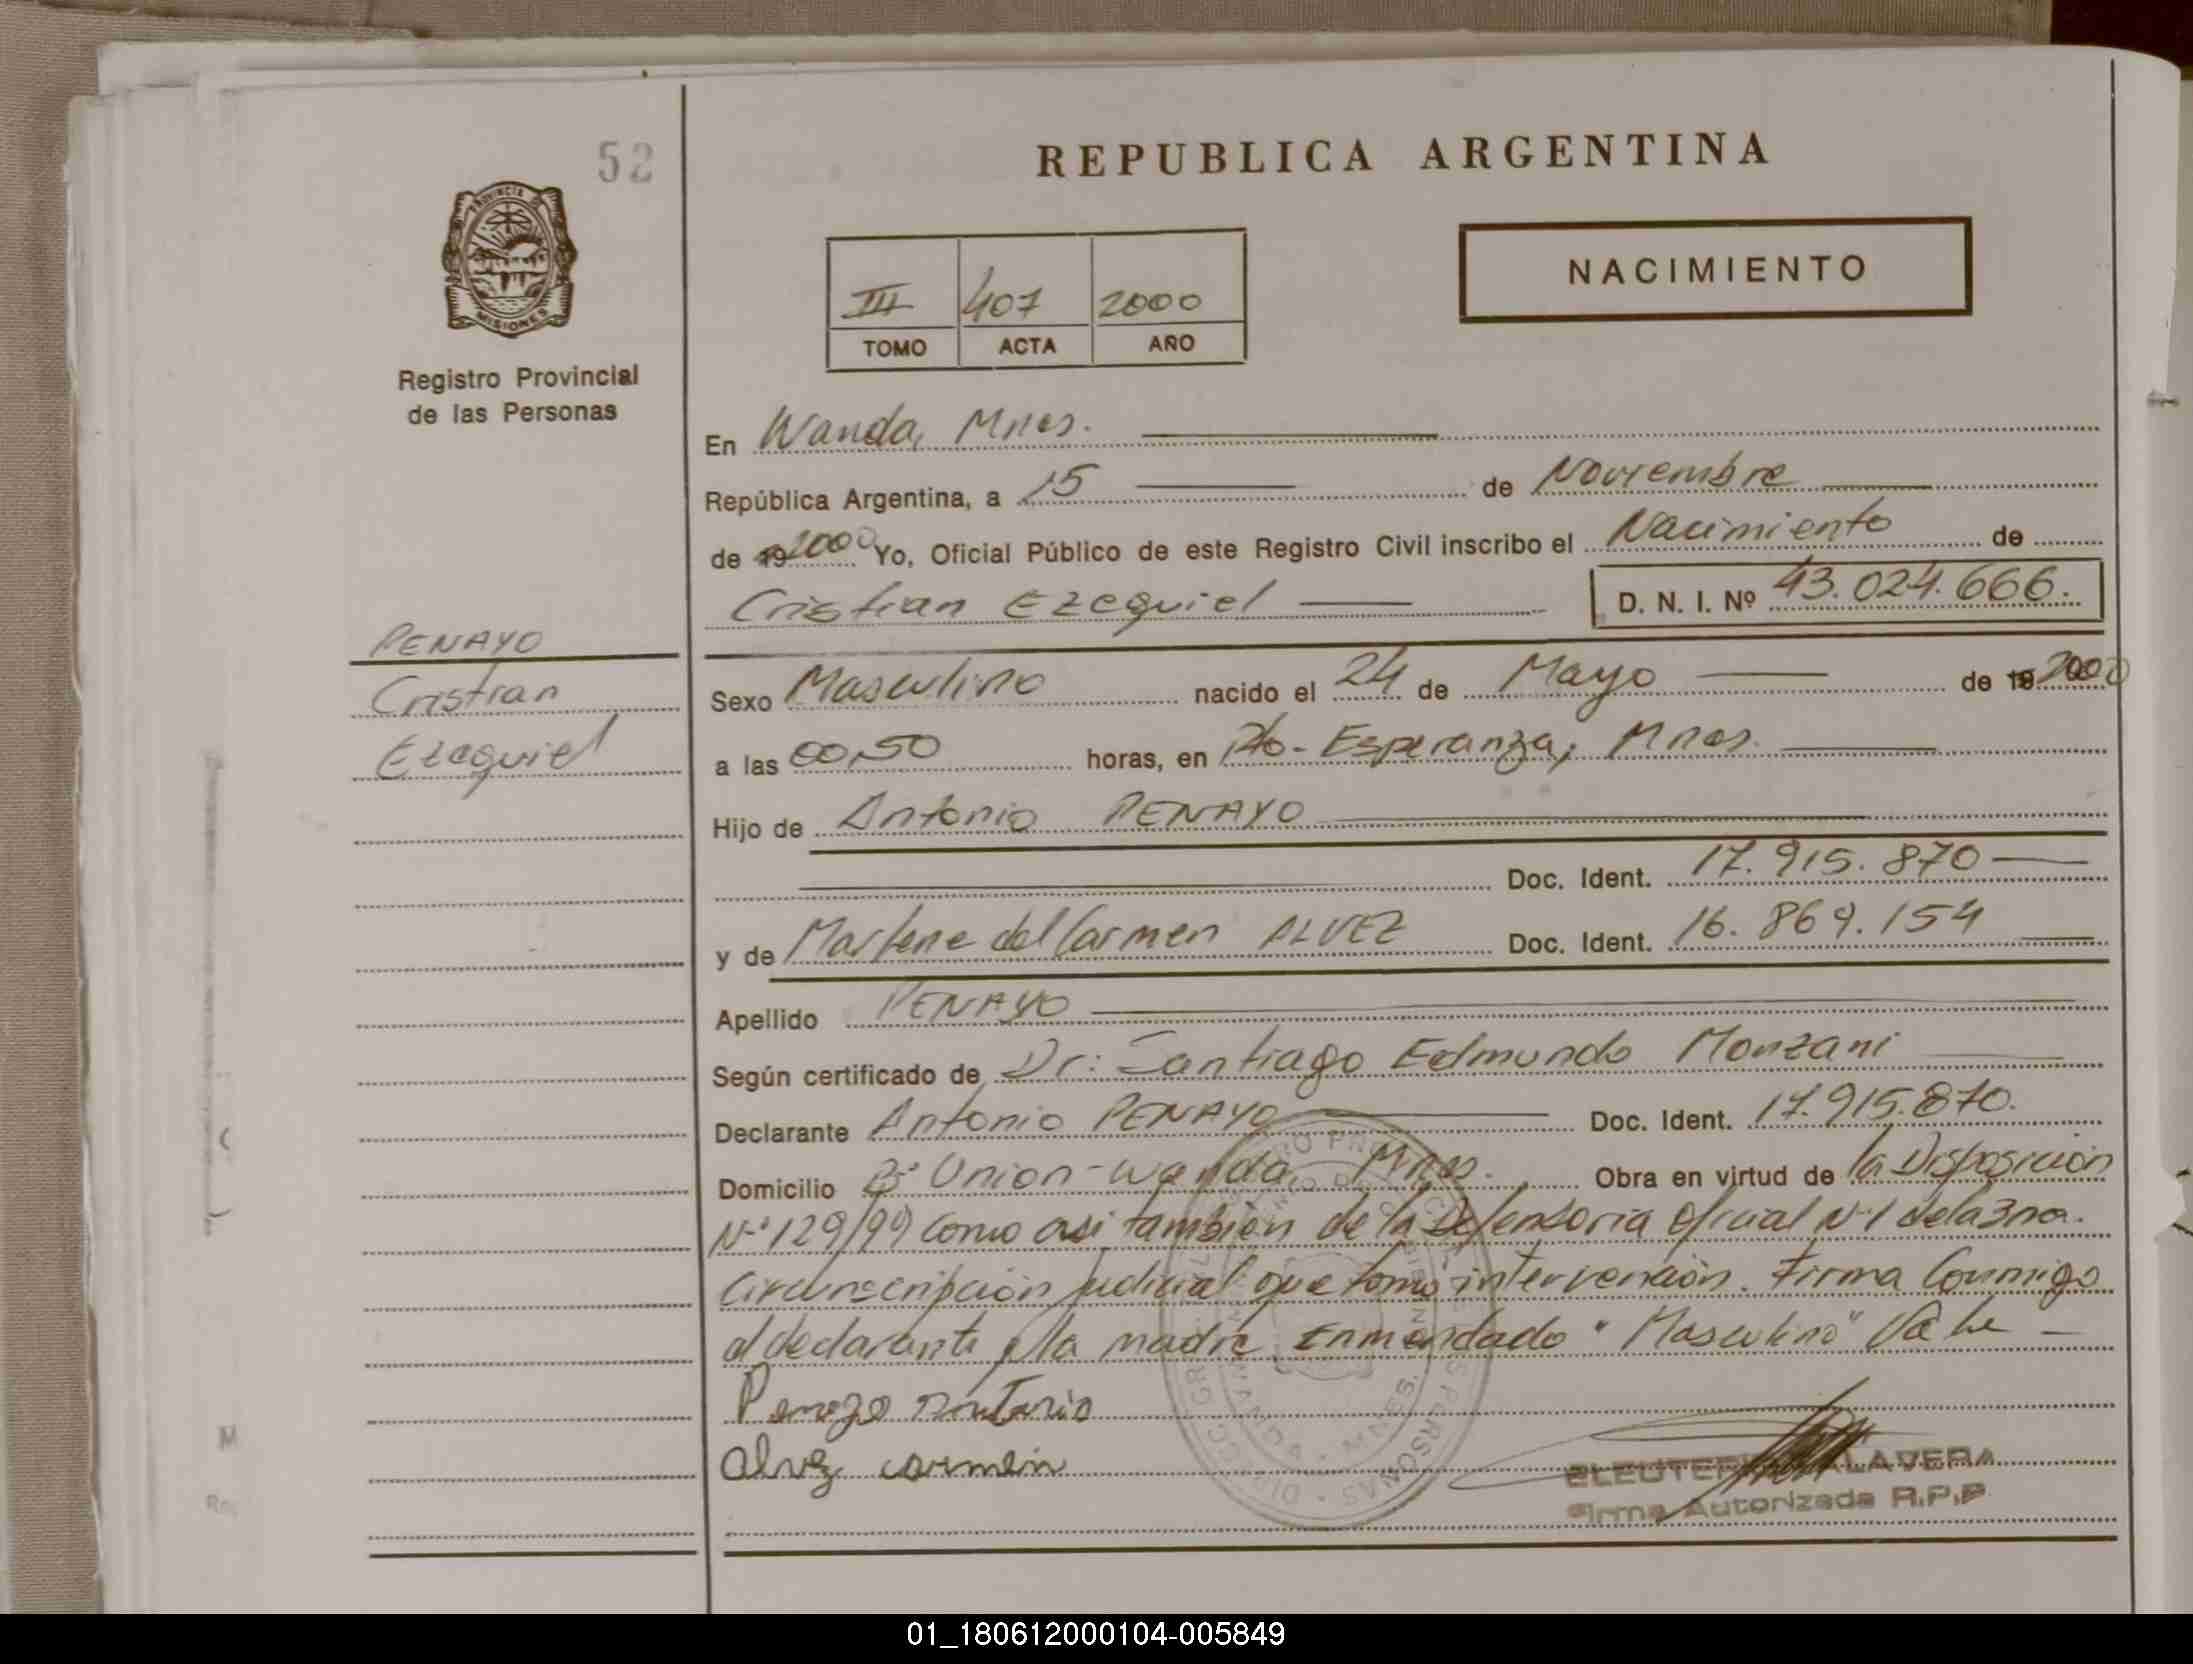 52
PROVINCIA DE
MISIONES
Registro Provincial
de las Personas
PENAYO
Cristian
Ezequiel
REPUBLICA ARGENTINA
III 407 2000
TOMO ACTA AÑO
NACIMIENTO
En Wanda, Mnes.
República Argentina, a 15 de Noviembre
de 19 2000 Yo, Oficial Público de este Registro Civil inscribo el Nacimiento de
Cristian Ezequiel D. N. I. Nº 43.024.666.
Sexo Masculino nacido el 24 de Mayo de 19 2000
a las 00,50 horas, en Pto. Esperanza, Mnes.
Hijo de Antonio PENAYO
Doc. Ident. 17.915.870
y de Marlene del Carmen ALVEZ Doc. Ident. 16.869.154
Apellido PENAYO
Según certificado de Dr: Santiago Edmundo Monzani
Declarante Antonio PENAYO Doc. Ident. 17.915.870.
Domicilio Bº Union-Wanda, Mnes. Obra en virtud de la Disposición
Nº 129/99 como asi tambien de la Defensoria Oficial Nº1 de la 3ra.
Circunscripción Judicial que tomo intervención. Firma Conmigo
el declarante y la madre. Enmendado "Masculino" Vale
Penayo Antonio
Alvez carmen
Firma Autorizada R.P.P.
01_180612000104-005849